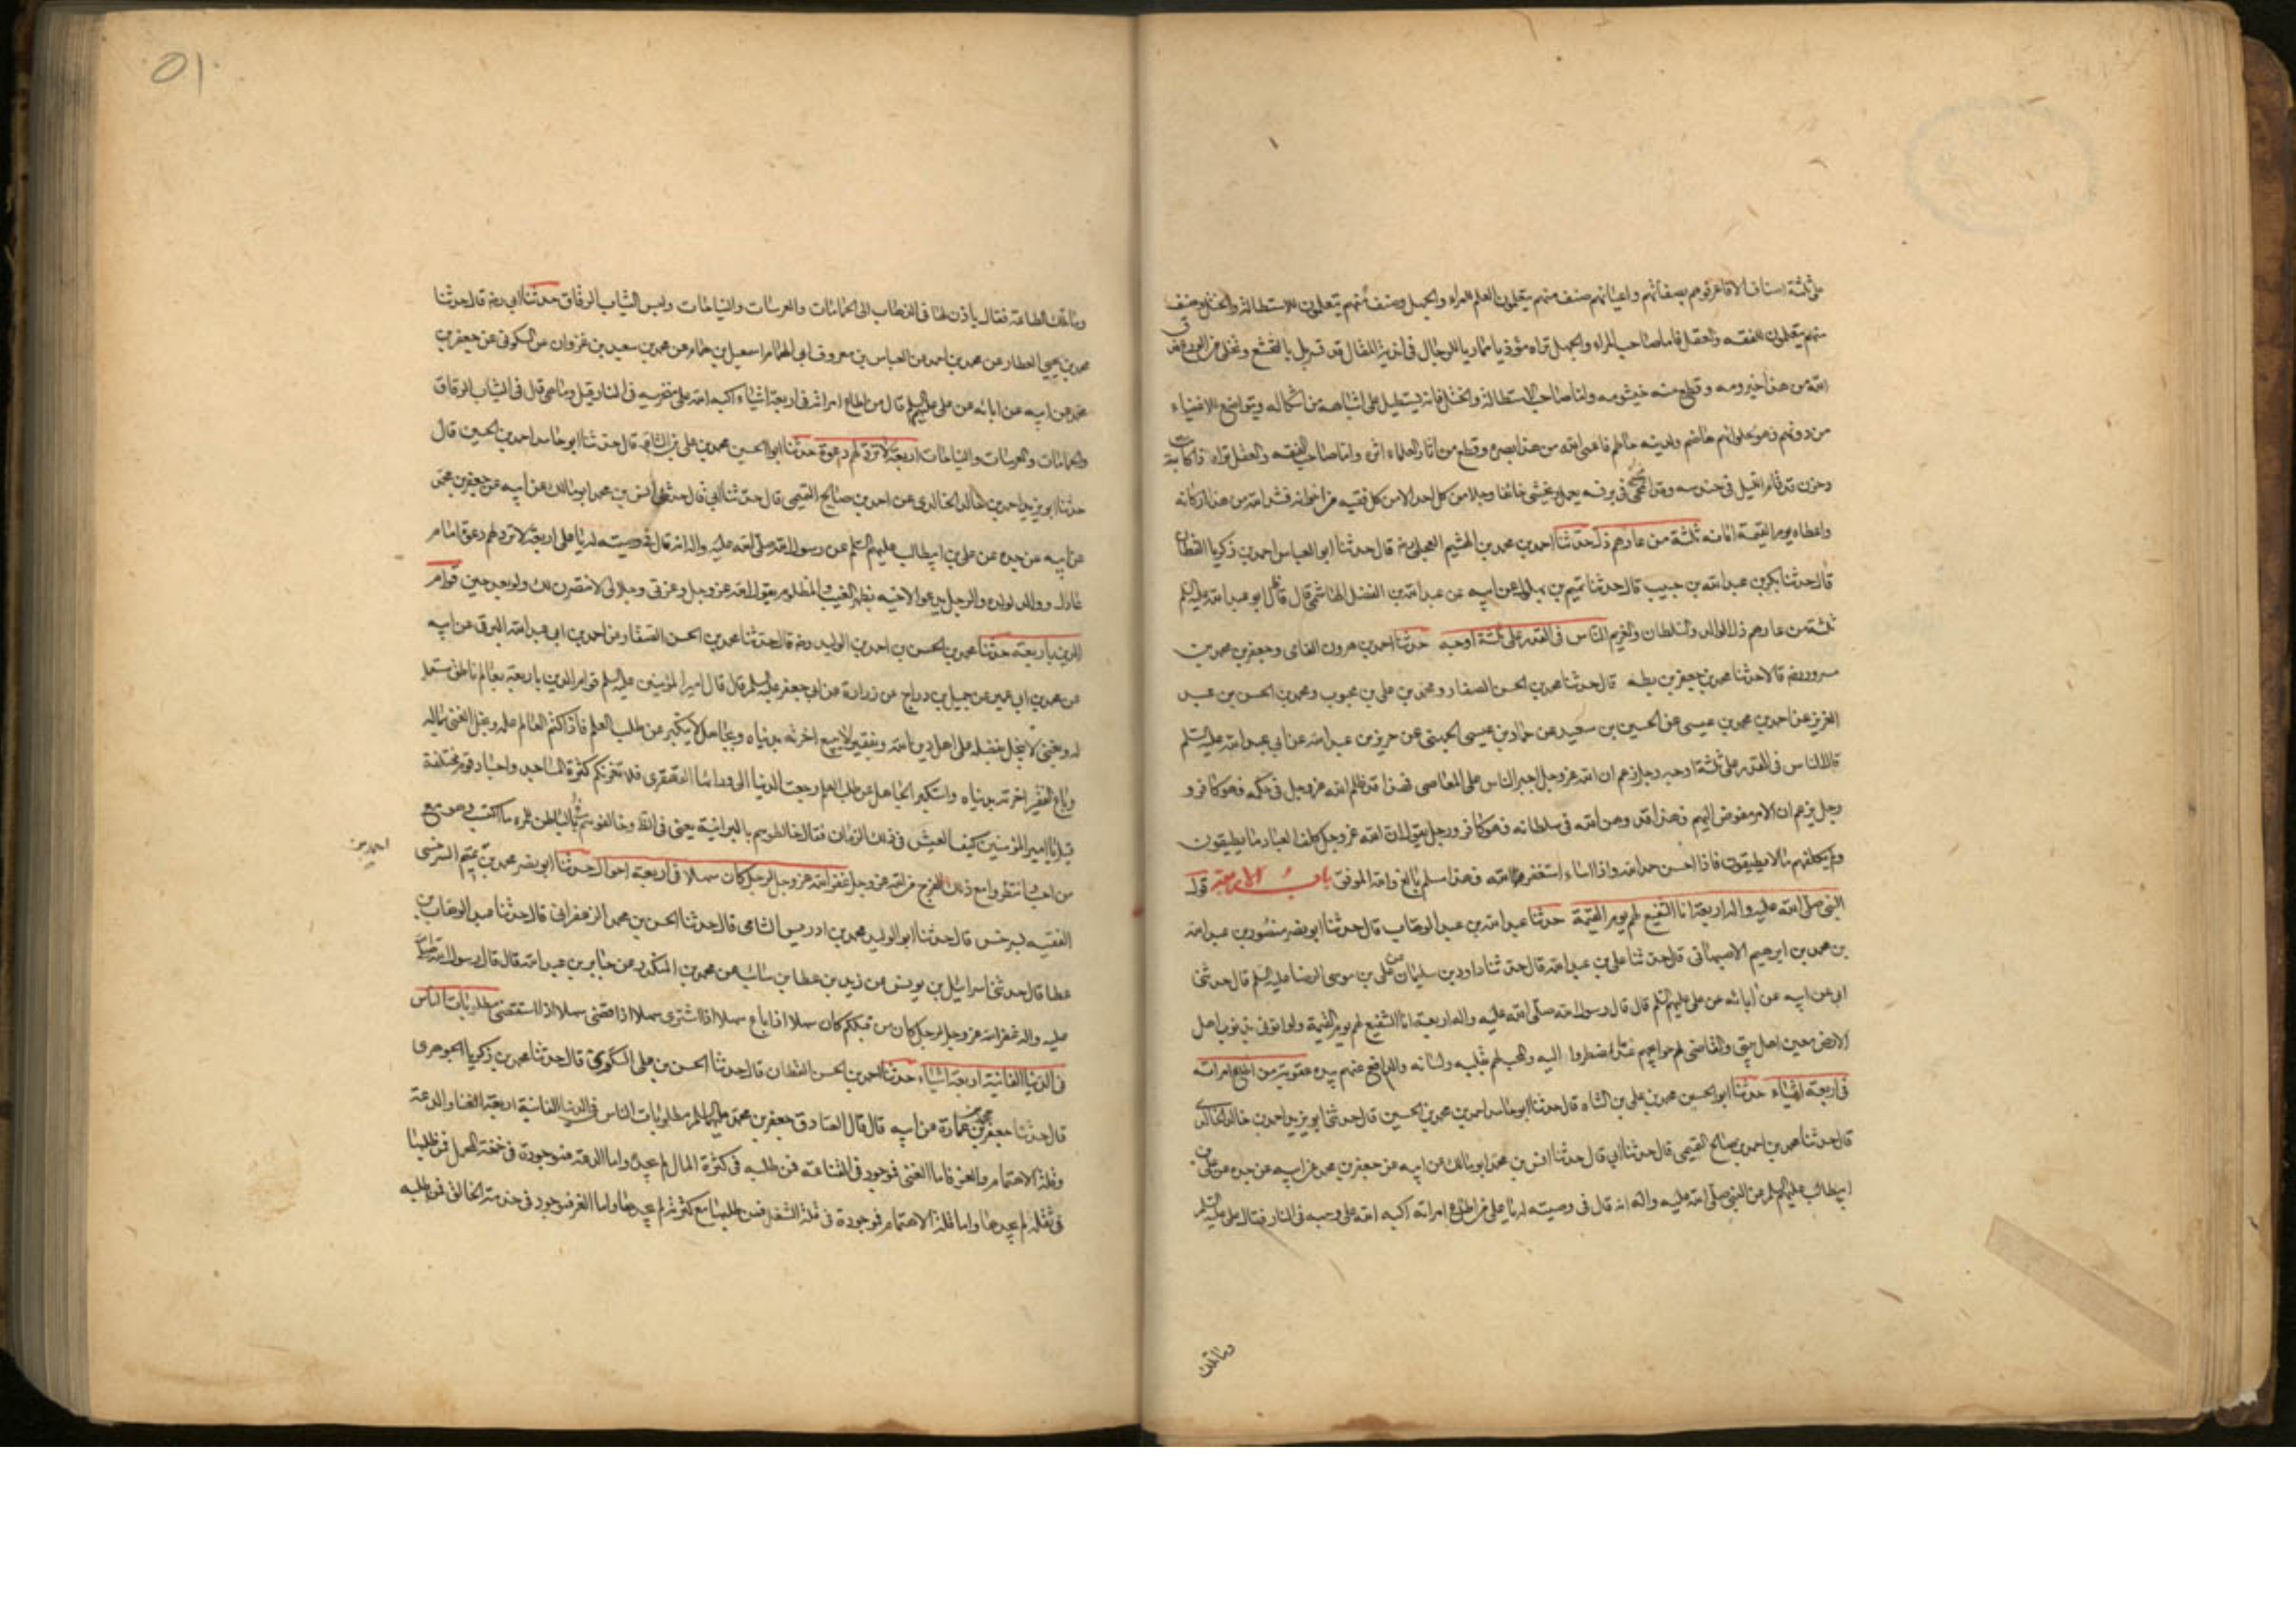 على ثلثة اصناف الا فاعرفوهم بصفاتهم واعيانهم صنف منهم يتعلمون العلم للمراء والجهل وصنف منهم يتعلمون للاستطالة والختل وصنف
منهم يتعلمون للفقه والعقل فاما صاحب المراء والجهل تراه مؤذيا مماريا للرجال في اندية المقال قد تسربل بالتخشع وتخلى من الورع فدق
الله من هذا خيزومه وقطع منه خيشومه واما صاحب الاستطالة والختل فانه يستطيل على اشباهه من اشكاله ويتواضع للاغنياء
من دونهم فهو لحلوائهم هاضم ولدينه حاطم فاعمى الله من هذا بصره وقطع من اثار العلماء اثره واما صاحب الفقه والعقل تراه ذا كابة
وحزن قد قام الليل في حندسه وقد انحنى في برنسه يعمل ويخشى خائفا وجلا من كل احد الا من كل فقيه من اخوانه فشد الله من هذا اركانه
واعطاه يوم القيمة امانه ثلثة من عازهم ذل حدثنا احمد بن محمد بن الهيثم العجلي رضه قال حدثنا ابو العباس احمد بن زكريا القطان
قال حدثنا بكر بن عبد الله بن حبيب قال حدثنا تميم بن بهلول عن ابيه عن عبد الله بن الفضل الهاشمي قال قال ابو عبد الله عليه السلم
ثلثة من عازهم ذل الوالد والسلطان والغريم الناس في القدر على ثلثة اوجه حدثنا احمد بن هرون الفامى وجعفر بن محمد بن
مسرور رضه قالا حدثنا محمد بن جعفر بن بطه قال حدثنا محمد بن الحسن الصفار ومحمد بن علي بن محبوب ومحمد بن الحسن بن عبد
العزيز عن احمد بن محمد بن عيسى عن الحسين بن سعيد عن حماد بن عيسى الجهنى عن حريز بن عبد الله عن ابي عبد الله عليه السلم
قال الناس في القدر على ثلثة اوجه رجل زعم ان الله عز وجل اجبر الناس على المعاصى فهذا قد ظلم الله عز وجل في حكمه فهو كافر و
رجل يزعم ان الامر مفوض اليهم فهذا قد وهن الله في سلطانه فهو كافر ورجل يقول ان الله عز وجل كلف العباد ما يطيقون
ولم يكلفهم ما لا يطيقون فاذا احسن حمد الله واذا اساء استغفر الله فهذا مسلم بالغ والله الموفق باب الاربعة قول
النبى صلى الله عليه واله اربعة انا الشفيع لهم يوم القيمة حدثنا عبد الله بن عبد الوهاب قال حدثنا ابو نصر منصور بن عبد الله
بن محمد بن ابرهيم الاصبهانى قال حدثنا على بن عبد الله قال حدثنا داود بن سليمان عن على بن موسى الرضا عليه السلم قال حدثنى
ابى عن ابيه عن ابائه عن على عليهم السلم قال قال رسول الله صلى الله عليه واله اربعة انا الشفيع لهم يوم القيمة ولو اتونى بذنوب اهل
الارض معين اهل بيتى والقاضى لهم حوائجهم عند ما اضطروا اليه والمحب لهم بقلبه ولسانه والدافع عنهم بيده عقوبة من اطاع امراته
في اربعة اشياء حدثنا ابو الحسين محمد بن على بن الشاه قال حدثنا ابو حامد احمد بن محمد بن الحسين قال حدثنا ابو يزيد احمد بن خالد الخالدى
قال حدثنا محمد بن احمد بن صالح التميمى قال حدثنا ابى قال حدثنا انس بن محمد ابو مالك عن ابيه عن جعفر بن محمد عن ابيه عن جده عن على بن
ابيطالب عليهم السلم عن النبى صلى الله عليه واله انه قال في وصيته له يا على من اطاع امراته اكبه الله على وجهه في النار فقال على عليه السلم
وما تلك
01
وما تلك الطاعة فقال ياذن لها في الذهاب الى الحمامات والعرسات والنياحات ولبس الثياب الرقاق حدثنا ابى رضه قال حدثنا
محمد بن يحيى العطار عن محمد بن احمد عن العباس بن معروف عن ابى همام اسمعيل بن همام عن محمد بن سعيد بن غزوان عن السكونى عن جعفر بن
محمد عن ابيه عن ابائه عن على عليهم السلم قال من اطاع امراته في اربعة اشياء اكبه الله على منخريه في النار قيل وما هى قال في الثياب الرقاق
والحمامات والعرسات والنياحات اربعة لا ترد لهم دعوة حدثنا ابو الحسين محمد بن على بن الشاه قال حدثنا ابو حامد احمد بن الحسين قال
حدثنا ابو يزيد احمد بن خالد الخالدى عن احمد بن صالح التميمى قال حدثنا ابى قال حدثنى انس بن محمد ابو مالك عن ابيه عن جعفر بن محمد
عن ابيه عن جده عن على بن ابيطالب عليهم السلم عن رسول الله صلى الله عليه واله انه قال في وصيته له يا على اربعة لا ترد لهم دعوة امام
عادل ووالد لولده والرجل يدعو لاخيه بظهر الغيب والمظلوم يقول الله عز وجل وعزتى وجلالى لانتصرن لك ولو بعد حين قوام
الدين باربعة حدثنا محمد بن الحسن بن احمد بن الوليد رضه قال حدثنا محمد بن الحسن الصفار عن احمد بن ابى عبد الله البرقى عن ابيه
عن محمد بن ابى عمير عن جميل بن دراج عن زرارة عن ابى جعفر عليه السلم قال قال امير المؤمنين عليه السلم قوام الدين باربعة بعالم ناطق مستعمل
له وبغنى لا يبخل بفضله على اهل دين الله وبفقير لا يبيع اخرته بدنياه وبجاهل لا يتكبر عن طلب العلم فاذا كتم العالم علمه وبخل الغنى بماله
وباع الفقير اخرته بدنياه واستكبر الجاهل عن طلب العلم رجعت الدنيا الى ورائها القهقرى فلا تغرنكم كثرة المساجد واجساد قوم مختلفة
قيل يا امير المؤمنين كيف العيش في ذلك الزمان فقال خالطوهم بالبرانية يعنى في الظاهر وخالفوهم بالباطن للمرء ما اكتسب وهو مع
احمد بن
من احب وانتظروا مع ذلك الفرج من الله عز وجل غفر الله عز وجل لرجل كان سهلا في اربعة احوال حدثنا ابو نصر محمد بن تميم السرخسى
الفقيه بسرخس قال حدثنا ابو الوليد محمد بن ادريس الشامى قال حدثنا الحسن بن محمد الزعفرانى قال حدثنا عبد الوهاب بن
عطا قال حدثنى اسرائيل بن يونس عن زيد بن عطا بن سائب عن محمد بن المنكدر عن جابر بن عبد الله قال قال رسول الله صلى الله
عليه واله غفر الله عز وجل لرجل كان من قبلكم كان سهلا اذا باع سهلا اذا اشترى سهلا اذا قضى سهلا اذا استقضى مطلوبات الناس
في الدنيا الفانية اربعة اشياء حدثنا احمد بن الحسن القطان قال حدثنا الحسن بن على السكرى قال حدثنا محمد بن زكريا الجوهرى
قال حدثنا جعفر بن محمد بن عمارة عن ابيه قال قال الصادق جعفر بن محمد عليهما السلم مطلوبات الناس في الدنيا الفانية اربعة الغنا والدعة
وقلة الاهتمام والعز فاما الغنى فموجود في القناعة فمن طلبه في كثرة المال لم يجده واما الدعة فموجودة في خفة المحمل فمن طلبها
في ثقله لم يجدها واما قلة الاهتمام فموجودة في قلة الشغل فمن طلبها مع كثرته لم يجدها واما العز فموجود في خدمة الخالق فمن طلبه